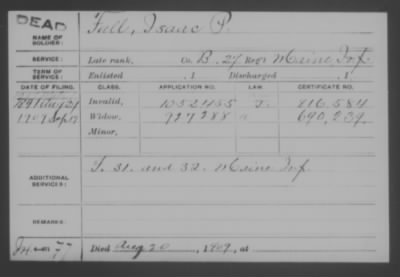 DEAD
NAME OF SOLDIER: Fall, Isaac P.
SERVICE: Late rank, Co. B. 27 Reg't Maine Inf.
TERM OF SERVICE: Enlisted , 1 Discharged , 1
DATE OF FILING. CLASS. APPLICATION NO. LAW. CERTIFICATE NO.
1891 Aug 21 Invalid, 1052455 J. 816,584
1909 Sep 13 Widow, 927288 690,239
Minor,
ADDITIONAL SERVICES: F. 31. and 32. Maine Inf.
REMARKS:
Died Aug 20 , 1909, at